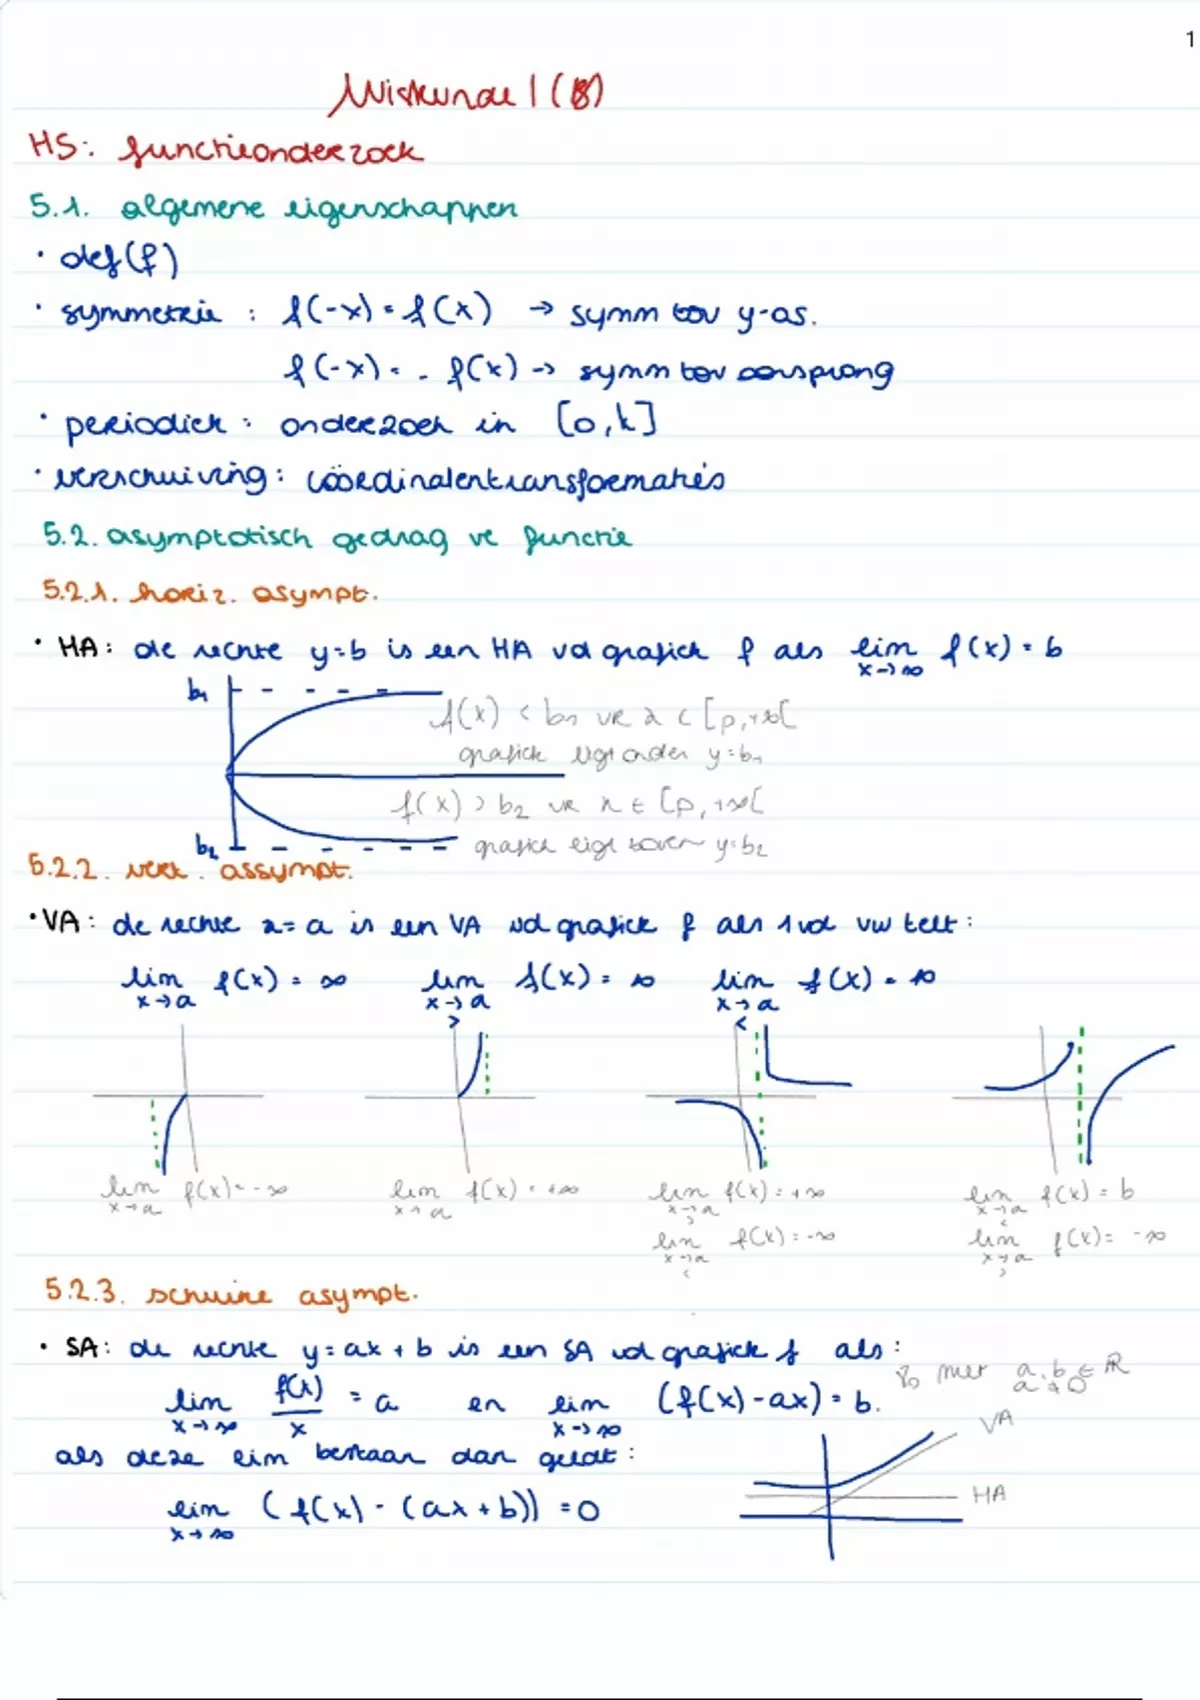 1
Wiskunde 1 (B)
H5: functieonderzoek
5.1. algemene eigenschappen
· def(f)
· symmetrie : f(-x) = f(x) → symm tov y-as.
f(-x) = - f(x) → symm tov oorsprong
· periodiek : onderzoek in [0,k]
· verschuiving : coördinatentransformaties
5.2. asymptotisch gedrag ve functie
5.2.1. horiz. asympt.
· HA: de rechte y=b is een HA vd grafiek f als lim f(x) = b
x→∞
b1
f(x) < b1 vr x ∈ [p,+∞[
grafiek ligt onder y=b1
f(x) > b2 vr x ∈ [p,+∞[
b2 grafiek ligt boven y=b2
5.2.2. vert. assympt.
· VA: de rechte x=a is een VA vd grafiek f als 1 vd vw telt:
lim f(x) = ∞ lim f(x) = ∞ lim f(x) = ∞
x→a x→a x→a
> <
lim f(x) = -∞ lim f(x) = +∞ lim f(x) = +∞ lim f(x) = b
x→a x→a x→a x→a
> <
lim f(x) = -∞ lim f(x) = -∞
x→a x→a
< >
5.2.3. schuine asympt.
· SA: de rechte y=ax+b is een SA vd grafiek f als:
met a,b ∈ ℝ
a≠0
lim f(x)/x = a en lim (f(x)-ax) = b.
x→∞ x→∞
VA
als deze lim bestaan dan geldt:
HA
lim (f(x) - (ax+b)) = 0
x→∞